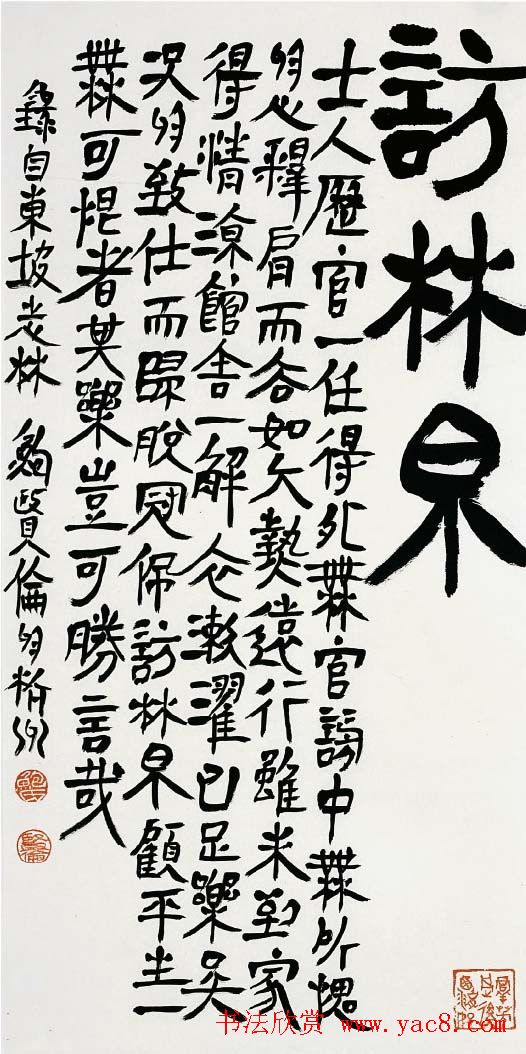 訪林泉
士人歷官一任得外無官謗中無所愧
於心釋肩而去如大熱遠行雖未到家
得清涼館舍一解衣漱濯已足樂矣
況於致仕而歸脫冠佩訪林泉顧平生一
無可恨者其樂豈可勝言哉
錄自東坡志林 鮑賢倫於杭州
賢倫
书法欣赏 www.yac8.com